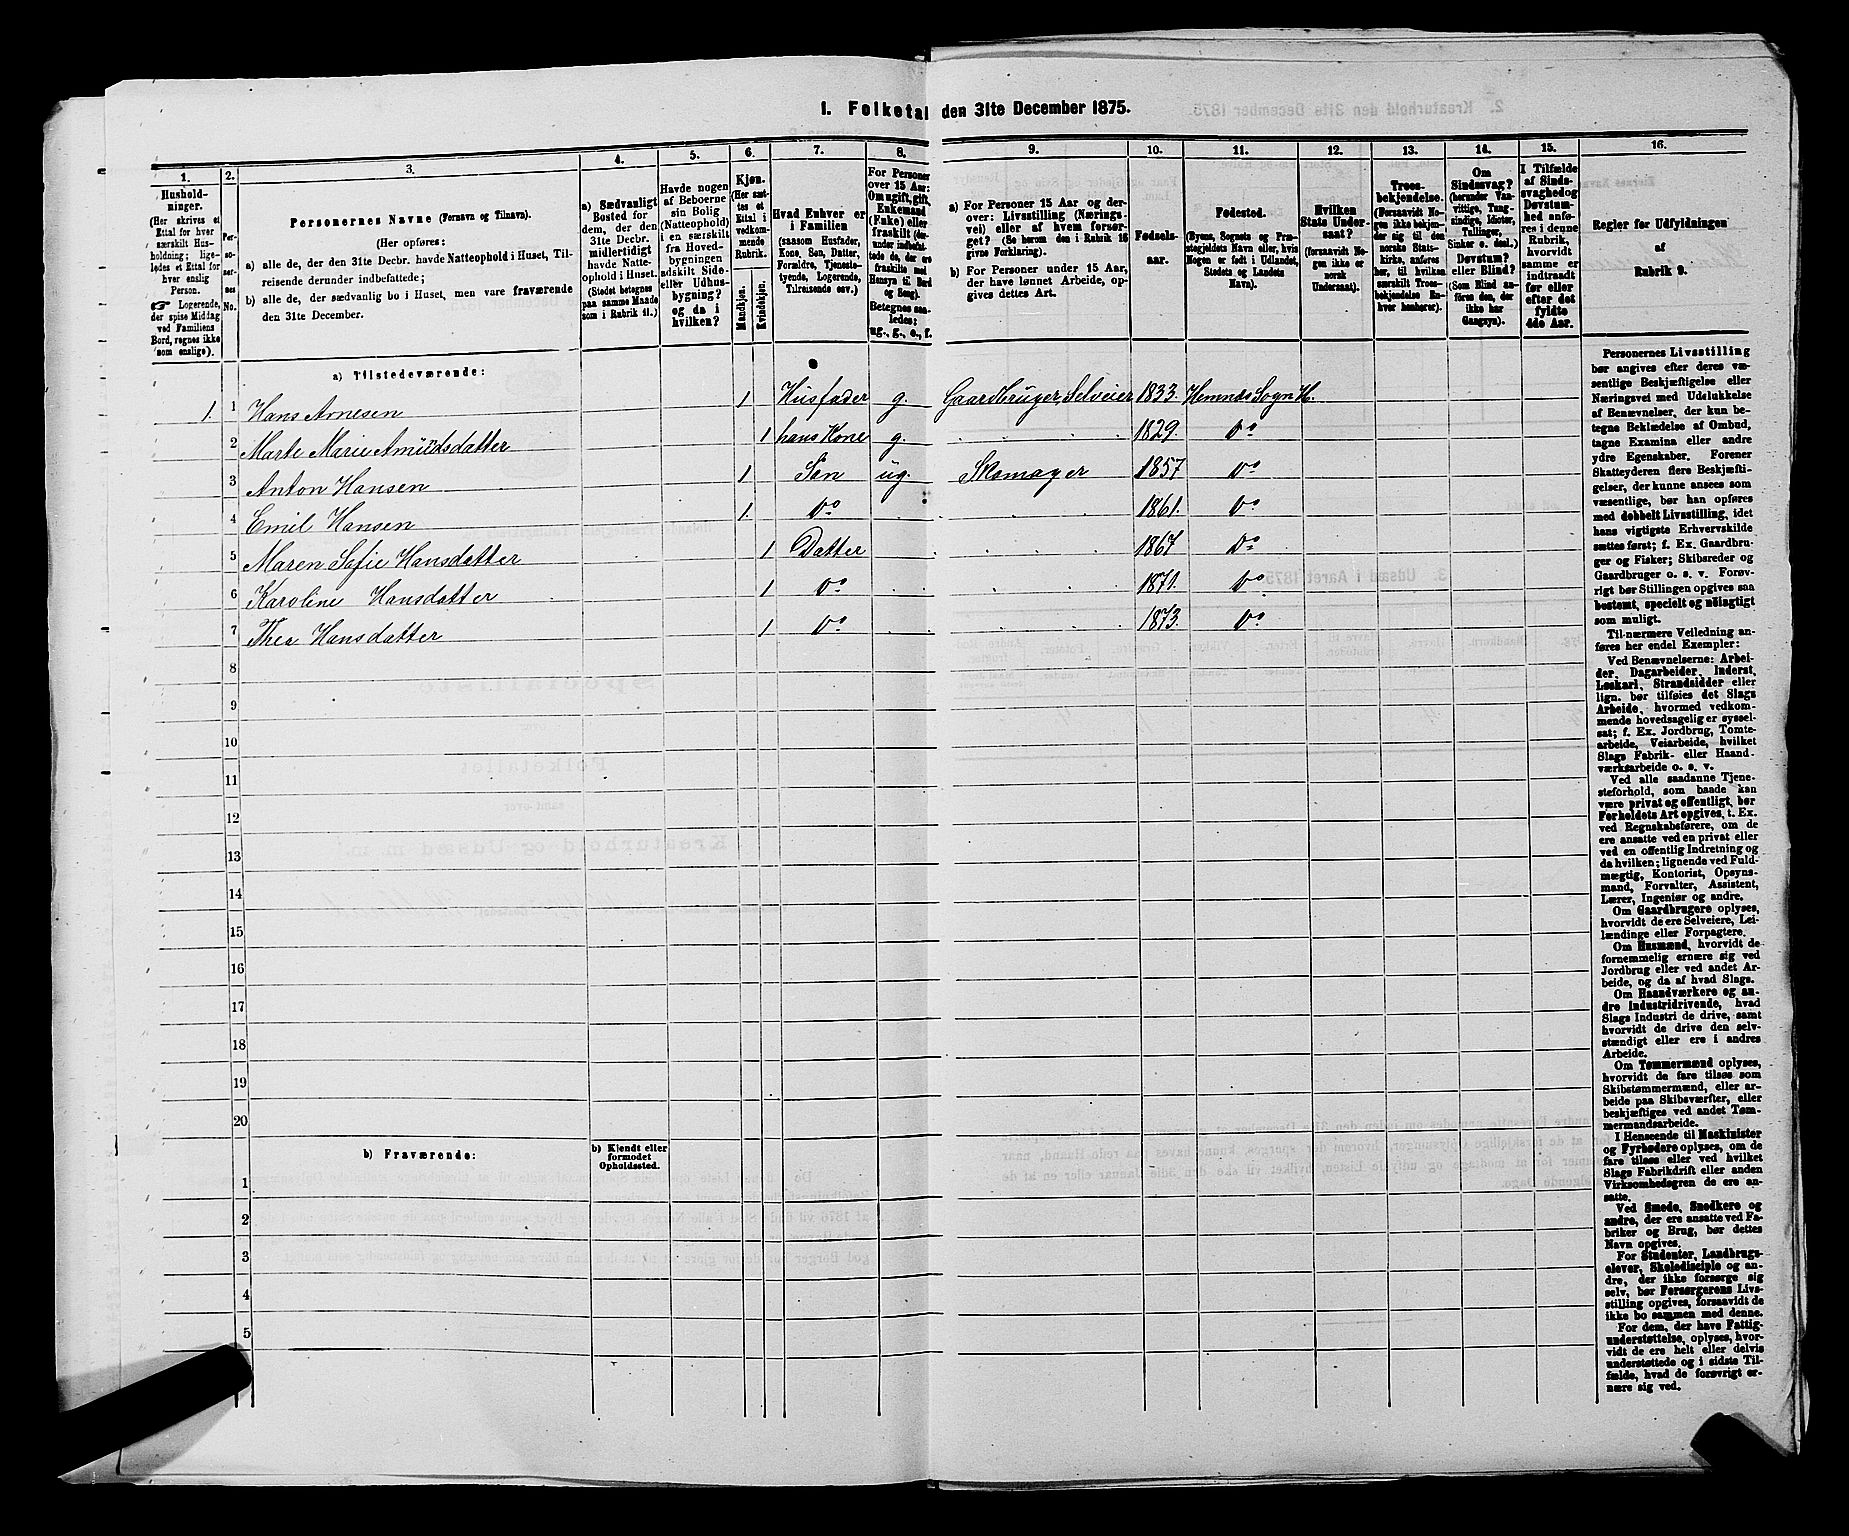 1. Folketal den 31te December 1875.
1. 2. 3. 4. 5. 6. 7. 8. 9. 10. 11. 12. 13. 14. 15. 16.
Hushold-
ninger.
(Her skrives et
Ettal for hver
særskilt Hus-
holdning; lige-
ledes et Ettal for
hver enslig
Person.
☞ Logerende,
der spise Middag
ved Familiens
Bord, regnes ikke
som enslige).
Per-
so-
ner-
nes
No.
Personernes Navne (Fornavn og Tilnavn).
(Her opføres:
a) alle de, der den 31te Decbr. havde Natteophold i Huset, Til-
reisende derunder indbefattede;
b) alle de, der sædvanlig bo i Huset, men vare fraværende
den 31te December.
a) Sædvanligt
Bosted for
dem, der den
31te Decbr.
midlertidigt
havde Natte-
ophold i Huset.
(Stedet betegnes
paa samme Maade
som i Rubrik 11.)
Havde nogen
af Beboerne
sin Bolig
(Natteophold)
i en særskilt
fra Hoved-
bygningen
adskilt Side-
eller Udhus-
bygning?
og da i
hvilken?
Kjøn.
(Her sæt-
tes et
Ettal i
vedkom-
mende
Rubrik.
Mandkjøn.
Kvindekjøn.
Hvad Enhver er
i Familien
(saasom Husfader,
Kone, Søn, Datter,
Forældre, Tjeneste-
tyende, Logerende,
Tilreisende osv.)
For Personer
over 15 Aar:
Om ugift, gift,
Enkemand
(Enke) eller
fraskilt
Betegnes saa-
ledes:
ug., g., e., f.
a) For Personer 15 Aar og der-
over: Livsstilling (Nærings-
vei) eller af hvem forsør-
get? (Se herom den i Rubrik 16
givne Forklaring).
b) For Personer under 15 Aar,
der have lønnet Arbeide, op-
gives dettes Art.
Fødsels-
aar.
Fødested.
(Byens, Sognets og Præ-
stegjeldets Navn eller, hvis
Nogen er født i Udlandet,
Stedets og Landets
Navn).
Hvilken
Stats Under-
saat?
(forsaavidt No-
gen ikke er
norsk
Undersaat).
Troes-
bekjendelse.
(Forsaavidt No-
gen ikke bekjen-
der sig til den
norske Stats-
kirke, anføres
her, til hvilken
særskilt Troes-
bekjendelse En-
hver henhører).
Om
Sindssvag?
(herunder Van-
vittige, Tung-
sindige, Idioter,
Tullinger,
Sinker o. desl.)
Døvstum?
eller Blind?
(Som Blind an-
føres den, der
ikke har
Gangsyn).
I Tilfælde
af Sinds-
svaghed og
Døvstum-
hed anfø-
res i denne
Rubrik,
hvorvidt
samme er
indtraadt
før eller
efter det
fyldte
4de Aar.
Regler for Udfyldningen
af
Rubrik 9.
a) Tilstedeværende:
1. 1 Hans Arnesen 1 Husfader g. Gaardbruger, Selveier 1833. Hennes Sogn H.
2 Marte Marie Amundsdatter 1 hans Kone g. 1829. Do
3 Anton Hansen 1 Søn ug. Skomager 1857 Do
4 Emil Hansen 1. Do 1861. Do
5 Maren Sofie Hansdatter 1 Datter 1867 Do
6 Karoline Hansdatter 1 Do 1871. Do
7 Thea Hansdatter 1 Do 1873. Do
8
9
10
11
12
13
14
15
16
17
18
19
20
b) Fraværende:
b) Kjendt eller
formodet
Opholdssted.
1
2
3
4
5
Personernes Livsstilling
bør angives efter deres væ-
sentlige Beskjæftigelse eller
Næringsvei med Udelukkelse
af Benævnelser, der kun be-
tegne Beklædelse af Ombud,
tagne Examina eller andre
ydre Egenskaber. Forener
Skatteyderen flere Beskjæfti-
gelser, der kunne ansees som
væsentlige, bør han opføres
med dobbelt Livsstilling, idet
hans vigtigste Erhvervskilde
sættes først; f. Ex. Gaardbru-
ger og Fisker; Skibsreder og
Gaardbruger o. s. v. Forøv-
rigt bør Stillingen opgives saa
bestemt, specielt og nøiagtigt
som muligt.
Til nærmere Veiledning an-
føres her endel Exempler:
Ved Benævnelserne: Arbei-
der, Dagarbeider, Inderst,
Løskarl, Strandsidder eller
lign. bør tilføies det Slags
Arbeide, hvormed vedkom-
mende hovedsagelig er syssel-
sat; f. Ex. Jordbrug, Tomte-
arbeide, Veiarbeide, hvilket
Slags Fabrik- eller Haand-
værksarbeide o. s. v.
Ved alle saadanne Tjene-
steforhold, som baade kan
være privat og offentligt, bør
Forholdets Art opgives, t. Ex.
ved Regnskabsførere, om de
ere ansatte ved en privat eller
ved en offentlig Indretning og
da hvilken; lignende ved Fuld-
mægtig, Kontorist, Opsyns-
mand, Forvalter, Assistent,
Lærer, Ingeniør og andre.
Om Gaardbrugere oplyses,
hvorvidt de ere Selveiere, Lei-
lændinge eller Forpagtere.
Om Husmænd, hvorvidt de
fornemmelig ernære sig ved
Jordbrug eller ved andet Ar-
beide, og da af hvad Slags.
Om Haandværkere og an-
dre industridrivende, hvad
Slags Industri de drive, samt
hvorvidt de drive den selv-
stændigt eller ere i andres
Arbeide.
Om Tømmermænd oplyses,
hvorvidt de fare tilsøs som
Skibstømmermænd, eller ar-
beide paa Skibsværfter, eller
beskjæftiges ved andet Tøm-
mermandsarbeide.
I Henseende til Maskinister
og Fyrbødere oplyses, om de
fare tilsøs eller ved hvilket
Slags Fabrikdrift eller anden
Virksomhedsgren de ere an-
satte.
Ved Smede, Snedkere og
andre, der ere ansatte ved Fa-
briker og Brug, bør dettes
Navn opgives.
For Studenter, Landbrugs-
elever, Skoledisciple og an-
dre, der ikke forsørge sig
selv, bør Forsørgerens Livs-
stilling opgives, forsaavidt de
ikke bo sammen med denne.
For dem, der have Fattig-
understøttelse, oplyses, hvor-
vidt de ere helt eller delvis
understøttede og i sidste Til-
fælde, hvad de forøvrigt er-
nære sig ved.